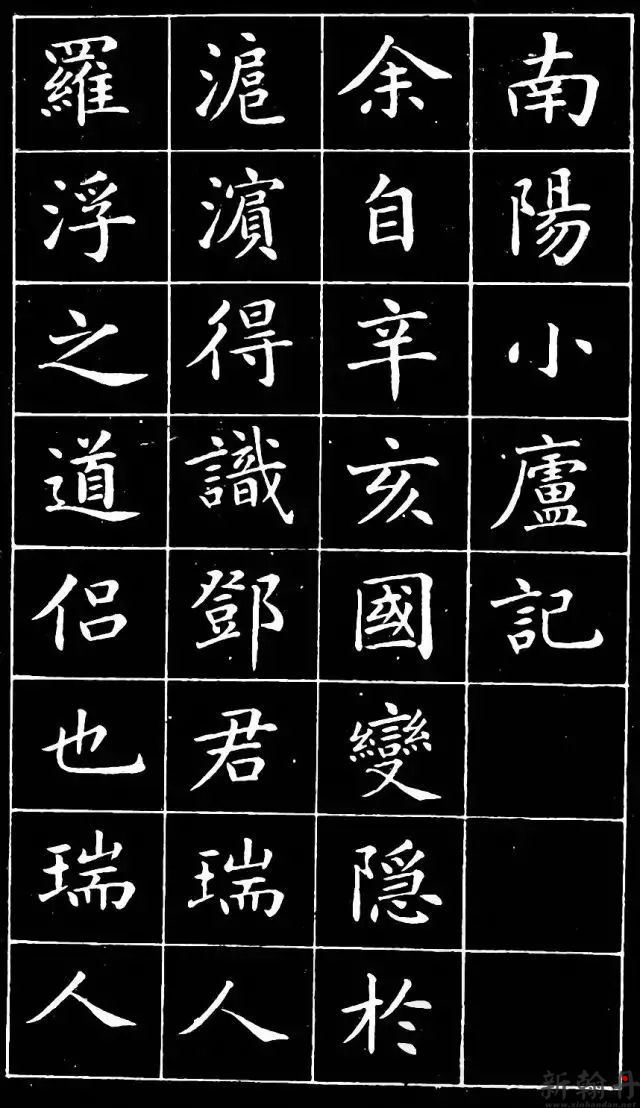 南陽小廬記
余自辛亥國變隱於
滬濵得識鄧君瑞人
羅浮之道侶也瑞人
新翰丹
www.xinhandan.net